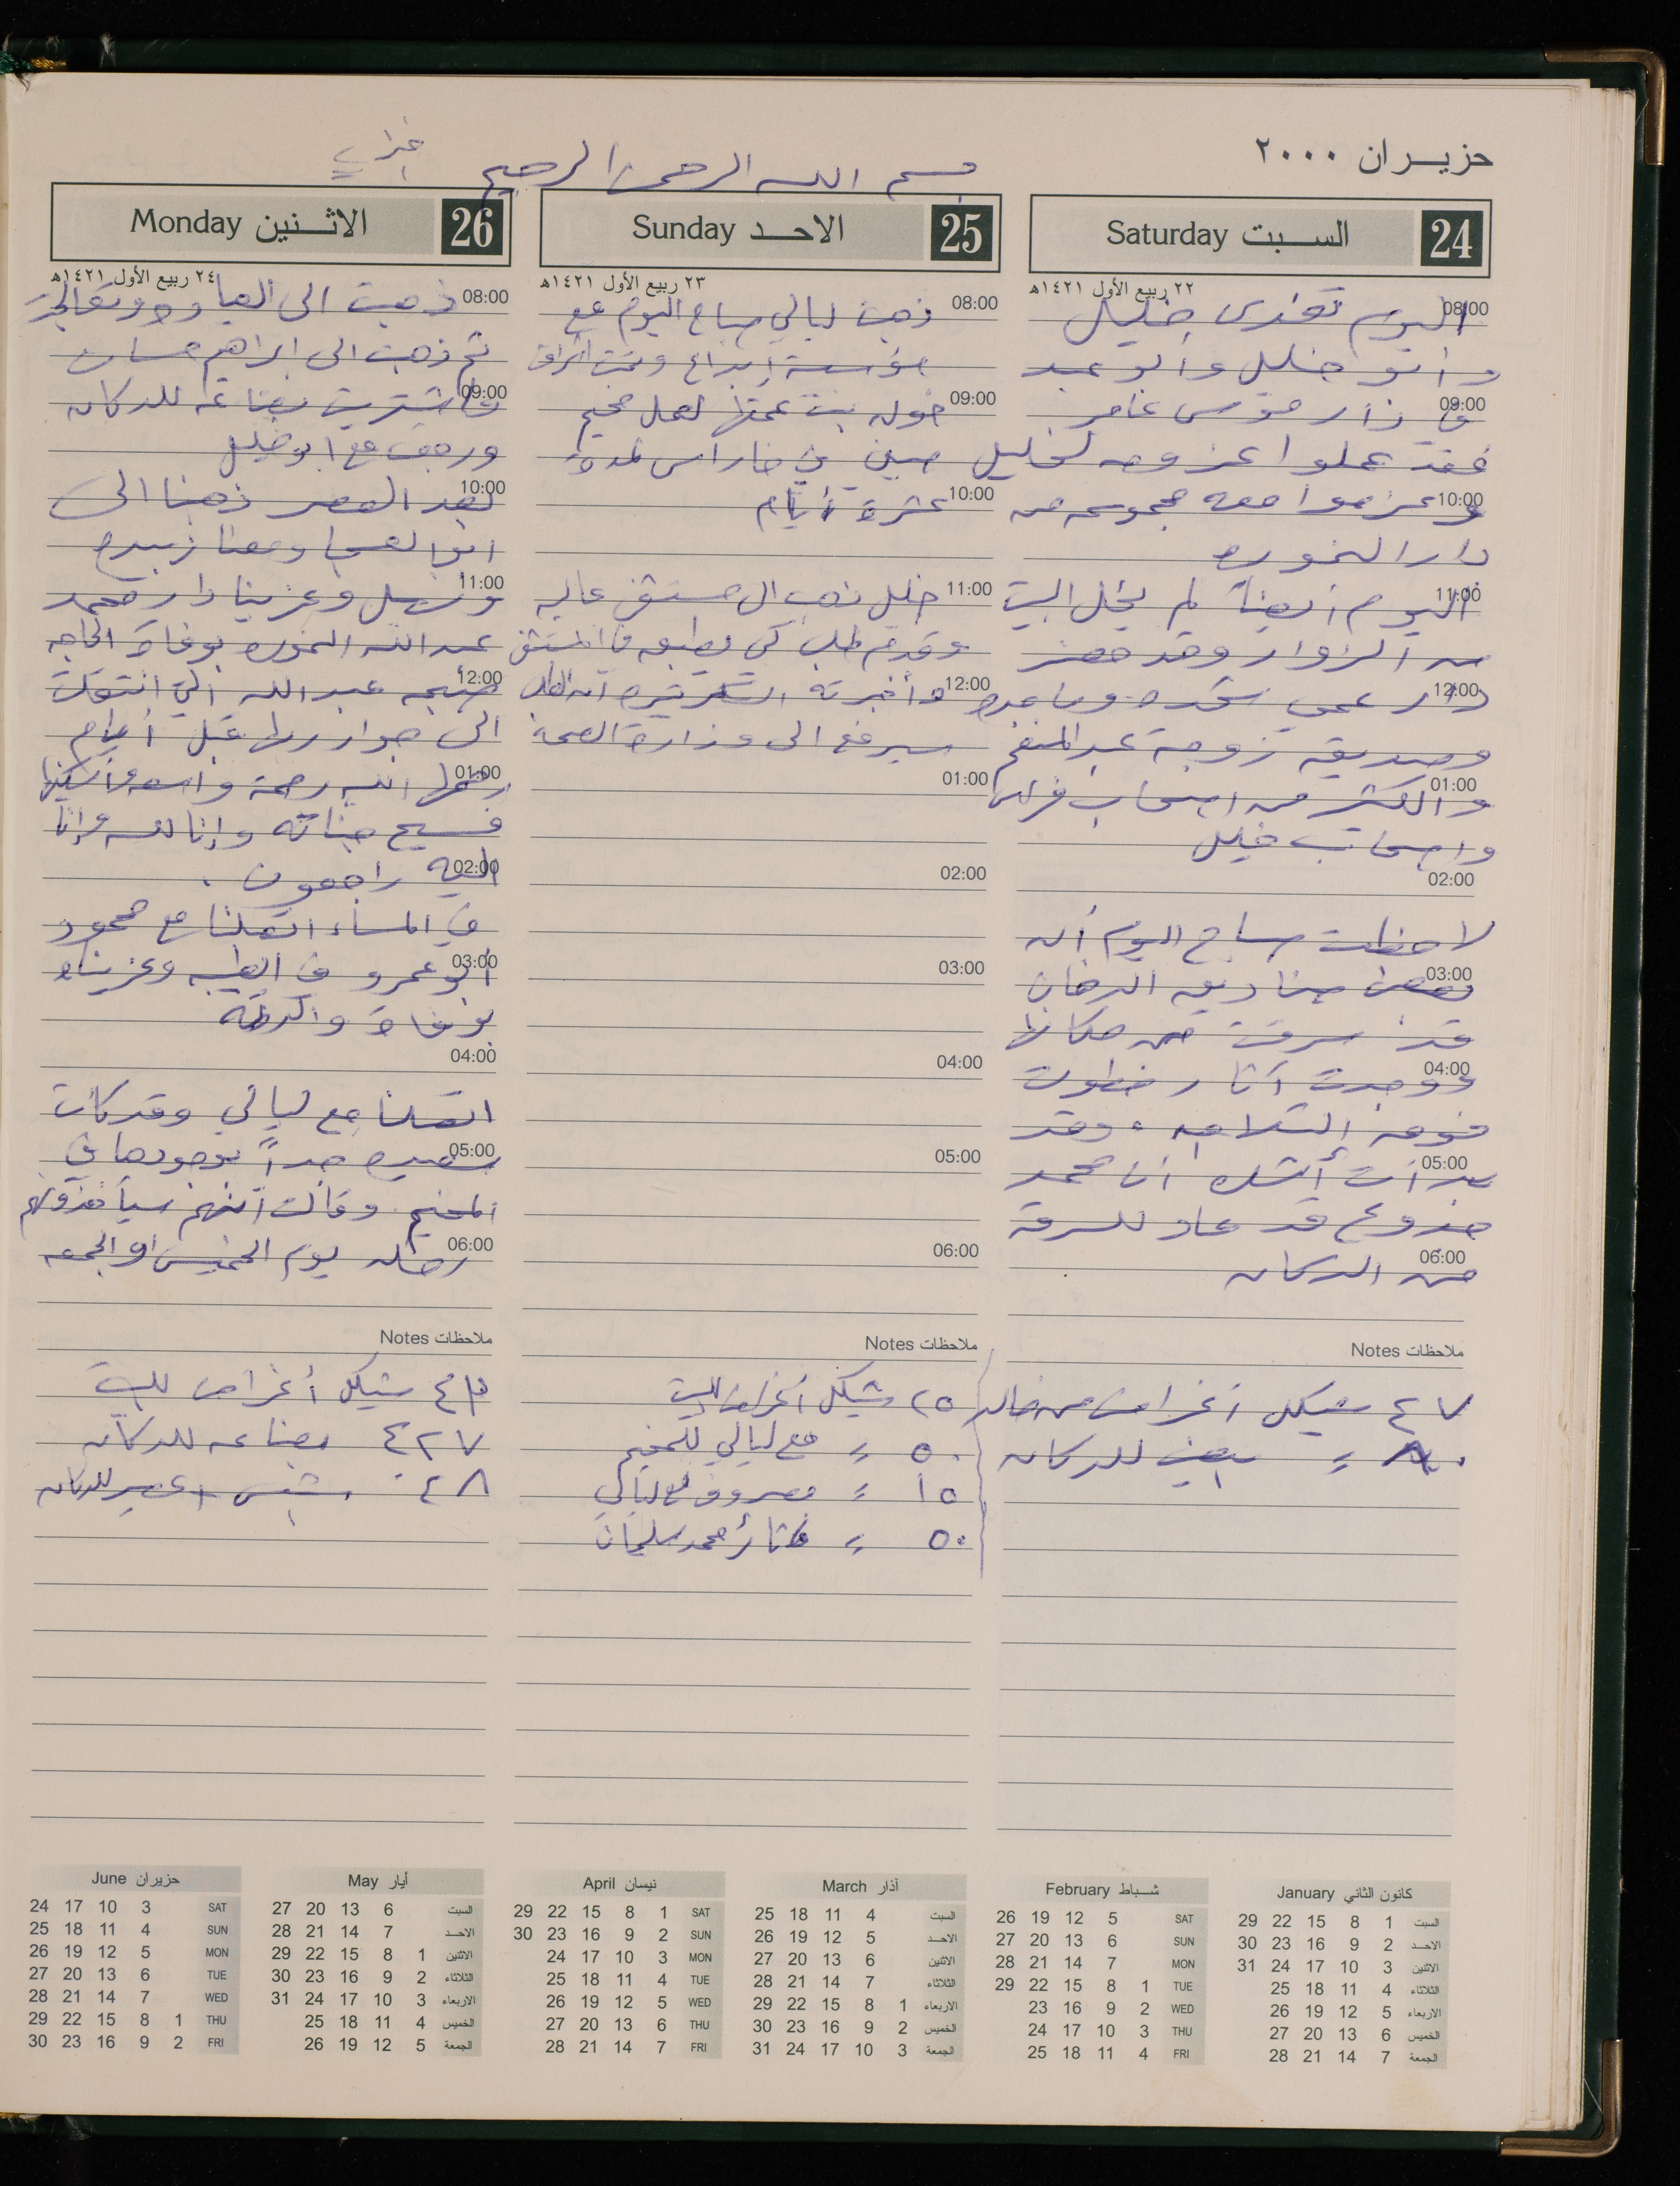 حزيـران ٢٠٠٠
بسم الله الرحمن الرحيم
24 السـبت Saturday
٢٢ ربيع الأول ١٤٢١هـ
08:00
اليوم تغدى خليل
وابو خليل وابو عبد
09:00
في دار موسى عامر
فقد عملوا عزومه لخليل
10:00
وعزموا معه مجموعه من
دار النموره
11:00
اليوم أيضاً لم يخل البيت
من الزوار وقد حضر
12:00
دار عمي
وصديقه زوجة عبد المنعم
01:00
والكثير من اصحاب فراس
واصحاب خليل
02:00
لاحظت صباح اليوم أن
03:00
بعض صناديق الدخان
قد سرقت من مكانها
04:00
ووجدت آثار خطوات
فوق الثلاجه . وقد
05:00
بدأت أشك ان محمد
قد عاد للسرقة
06:00
من الدكان
ملاحظات Notes
٤٧ شيكل أغراض من خالد
٨٠ = بيض للدكان
25 الاحـد Sunday
٢٣ ربيع الأول ١٤٢١هـ
08:00
ذهبت ليالي صباح اليوم مع
مؤسسة إبداع وتحت اشراف
09:00
خوله بنت عمتها لعمل مخيم
صيفي في لمدة
10:00
عشرة أيام
11:00
خليل ذهب الى مستشفى عاليه
وقدم طلب كي في المستشفى
12:00
وأخبرته السكرتيره أن الطلب
سيرفع الى وزارة الصحة
01:00
02:00
03:00
04:00
05:00
06:00
ملاحظات Notes
٢٥ شيكل أغراض للبيت
٥٠ = مع ليالي للمخيم
١٥ = مصروف مع ليالي
٥٠ = محمد سليمان
26 الاثـنين Monday
٢٤ ربيع الأول ١٤٢١هـ
08:00
ذهبت الى العياده
ثم ذهبت الى ابراهيم حسان
09:00
فاشتريت بضاعة للدكان
ورجعت مع ابو خليل
10:00
بعد العصر ذهبنا الى
ابو العبد ومعنا زبيده
11:00
وعزينا دار محمد
عبدالله النموره بوفاة الحاجه
12:00
صبحه عبدالله التي انتقلت
الى جوار ربها قبل أيام
01:00
رحمها الله رحمة واسعه وأسكنها
فسيح جناته وإنا لله وإنا
02:00
اليه راجعون .
في المساء اتصلنا مع محمود
03:00
أبو عمرو في الطيبه وعزيناه
بوفاة والدته
04:00
اتصلنا مع ليالي وقد كانت
05:00
سعيده جداً بوجودها في
المخيم وقالت أنهم سيأخذونهم
06:00
رحله يوم الخميس او الجمعه
ملاحظات Notes
٤٣ شيكل أغراض للبيت
٤٢٧ بضاعه للدكان
٤٨٠ عصير للدكان
كانون الثاني January
السبت 1 8 15 22 29
الاحـد 2 9 16 23 30
الاثنين 3 10 17 24 31
الثلاثاء 4 11 18 25
الاربعاء 5 12 19 26
الخميس 6 13 20 27
الجمعة 7 14 21 28
شـباط February
SAT 5 12 19 26
SUN 6 13 20 27
MON 7 14 21 28
TUE 1 8 15 22 29
WED 2 9 16 23
THU 3 10 17 24
FRI 4 11 18 25
آذار March
السبت 4 11 18 25
الاحـد 5 12 19 26
الاثنين 6 13 20 27
الثلاثاء 7 14 21 28
الاربعاء 1 8 15 22 29
الخميس 2 9 16 23 30
الجمعة 3 10 17 24 31
نيسان April
SAT 1 8 15 22 29
SUN 2 9 16 23 30
MON 3 10 17 24
TUE 4 11 18 25
WED 5 12 19 26
THU 6 13 20 27
FRI 7 14 21 28
أيار May
السبت 6 13 20 27
الاحـد 7 14 21 28
الاثنين 1 8 15 22 29
الثلاثاء 2 9 16 23 30
الاربعاء 3 10 17 24 31
الخميس 4 11 18 25
الجمعة 5 12 19 26
حزيران June
SAT 3 10 17 24
SUN 4 11 18 25
MON 5 12 19 26
TUE 6 13 20 27
WED 7 14 21 28
THU 1 8 15 22 29
FRI 2 9 16 23 30